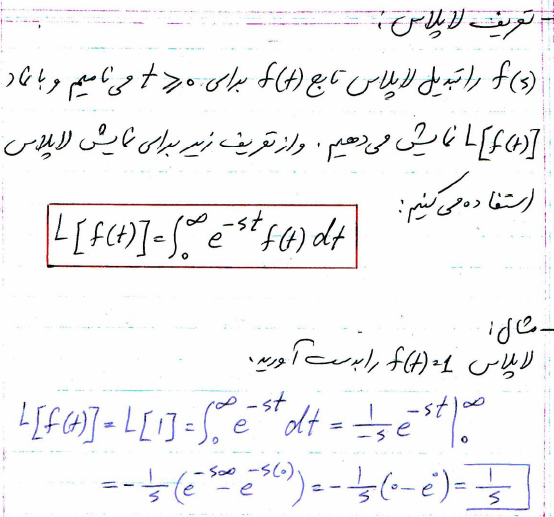 - تعریف لاپلاس :
f(s) را تبدیل لاپلاس تابع f(t) برای t ⩾ 0 می نامیم و با نماد
L[f(t)] نمایش می دهیم . و از تعریف زیر برای نمایش لاپلاس
استفاده می کنیم :
L[f(t)] = ∫₀^∞ e^{-st} f(t) dt
- مثال :
لاپلاس f(t)=1 را بدست آورید.
L[f(t)] = L[1] = ∫₀^∞ e^{-st} dt = \frac{1}{-s} e^{-st} |₀^∞
= -\frac{1}{s} (e^{-s∞} - e^{-s(0)}) = -\frac{1}{s} (0 - e^0) = \frac{1}{s}